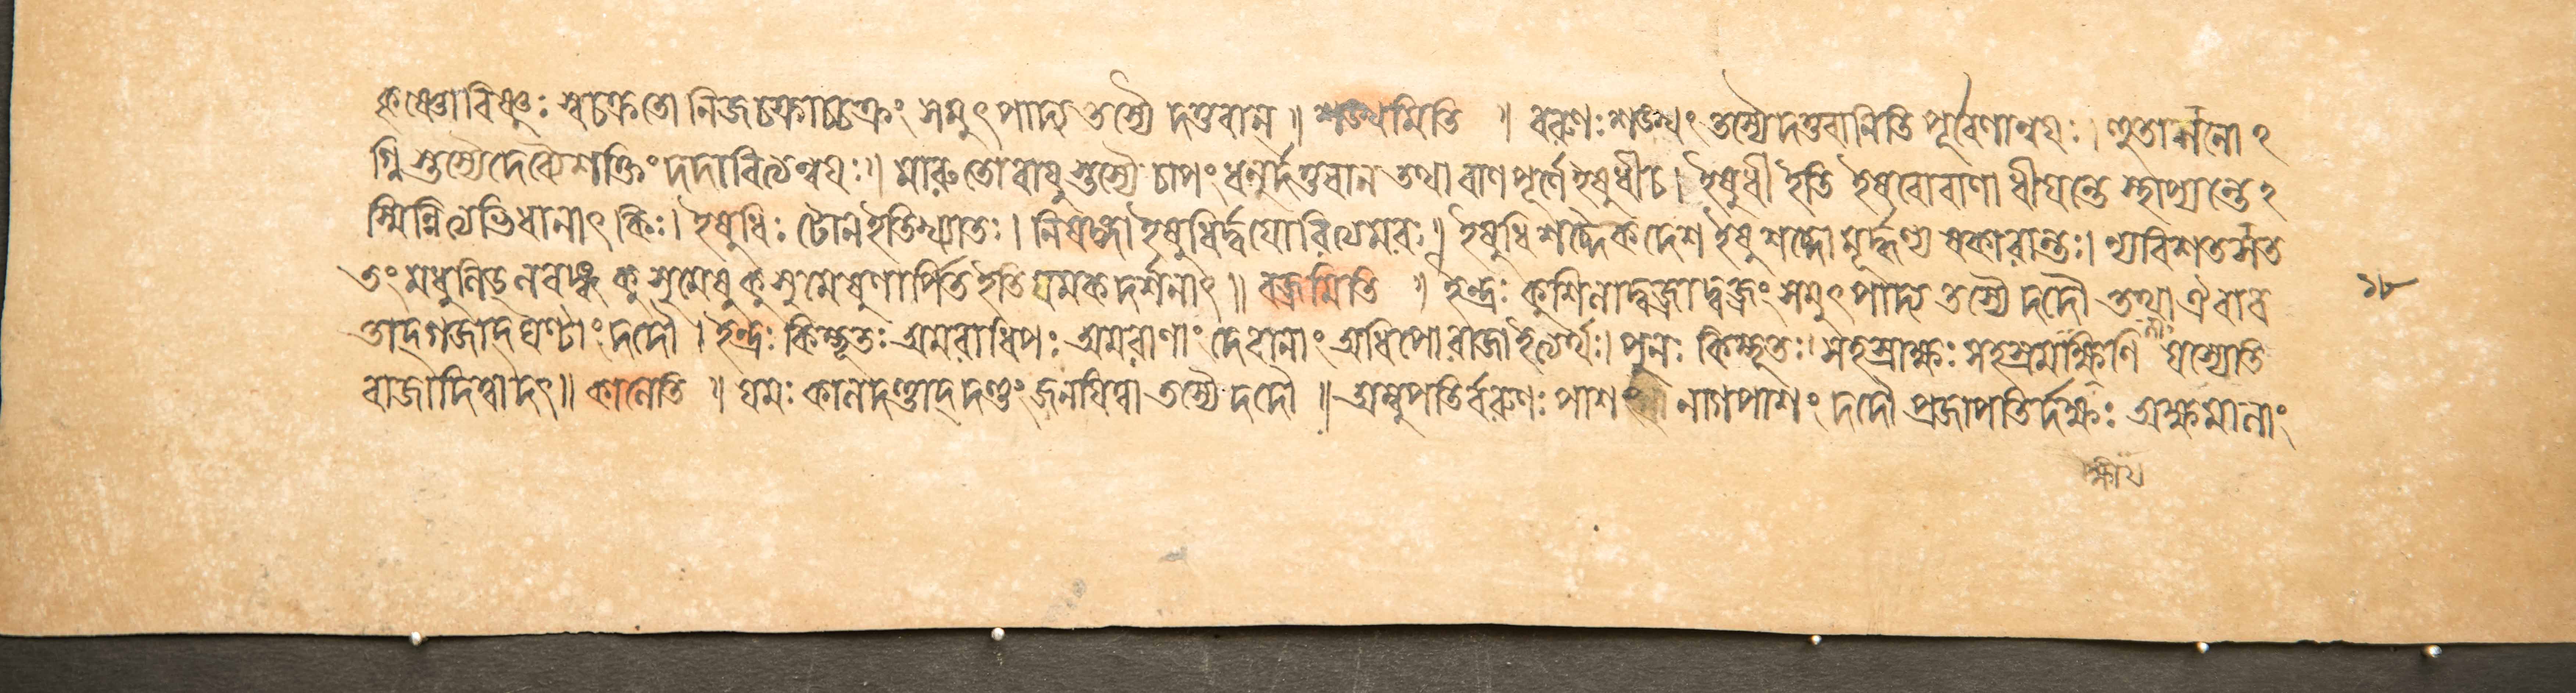 কৃষ্ণোবিষ্ণুঃ স্বচক্রতো নিজচক্রাচ্চক্রং সমুৎপাদ্য তস্যৈ দত্তবান্ ॥ শঙ্খমিতি ॥ বরুণঃ শঙ্খং তস্যৈদত্তবানিতি পূর্বেণান্বয়ঃ। হুতাশনো২
গ্নি স্তস্যৈদেব্যৈশক্তিং দদাবিত্যন্বয়ঃ॥ মারুতোবায়ু স্তস্যৈ চাপং ধনুর্দত্তবান তথা বাণপূর্ণে ইষুধীচ। ইষুধী ইতি ইষবোবাণা ধীয়ন্তে স্থাপ্যন্তে২
স্মিন্নিত্যভিধানাৎ কিঃ। ইষুধিঃ টোনইতিখ্যাতঃ। নিষঙ্গো ইষুধির্দ্বয়োরিত্যমরঃ॥ ইষুধিশব্দৈকদেশ ইষুশব্দো মূর্দ্ধণ্য ষকারান্তঃ।
তং মধুনি কুসুমেষু কুসুমেষুণার্পিত ইতি যমকদর্শনাৎ॥ বজ্রমিতি ॥ ইন্দ্রঃ কুশিনাদ্বজ্রাদ্বজ্রং সমুৎপাদ্য তস্যৈ দদৌ তথা ঐরাব ১৮
তাদ্গজাদ্ঘণ্টাং দদৌ। ইন্দ্রঃ কিম্ভূতঃ অমরাধিপঃ অমরাণাং দেবানাং অধিপো রাজা ইত্যর্থঃ। পুনঃ কিম্ভূতঃ। সহস্রাক্ষঃ সহস্রমক্ষিণি যস্যেতি
রাজাদিত্বাদৎ॥ কালেতি ॥ যমঃ কালদণ্ডাদ্দণ্ডং জনয়িত্বা তস্যৈ দদৌ ॥ অম্বুপতির্বরুণঃ পাশং নাগপাশং দদৌ প্রজাপতির্দক্ষঃ অক্ষমালাং